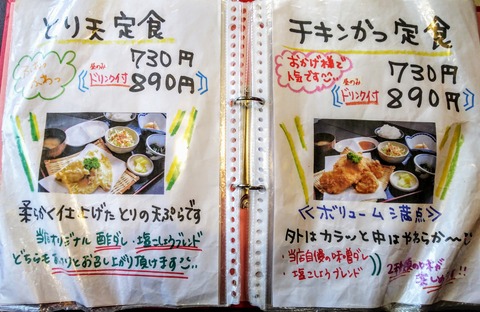 とり天定食
730円
昼のみ
ドリンク付
890円
柔らかく仕上げたとりの天ぷらです
当店オリジナル 酢ダレ・塩こしょうブレンド
どちらも
とお召し上り頂けます
チキンかつ定食
おかげ様で
人気です
730円
昼のみ
ドリンク付
890円
≪ボリューム満点≫
外はカラッと中はやわらか〜
・当店自慢の味噌ダレ
・塩こしょうブレンド
2種類の味が
楽しめ!!